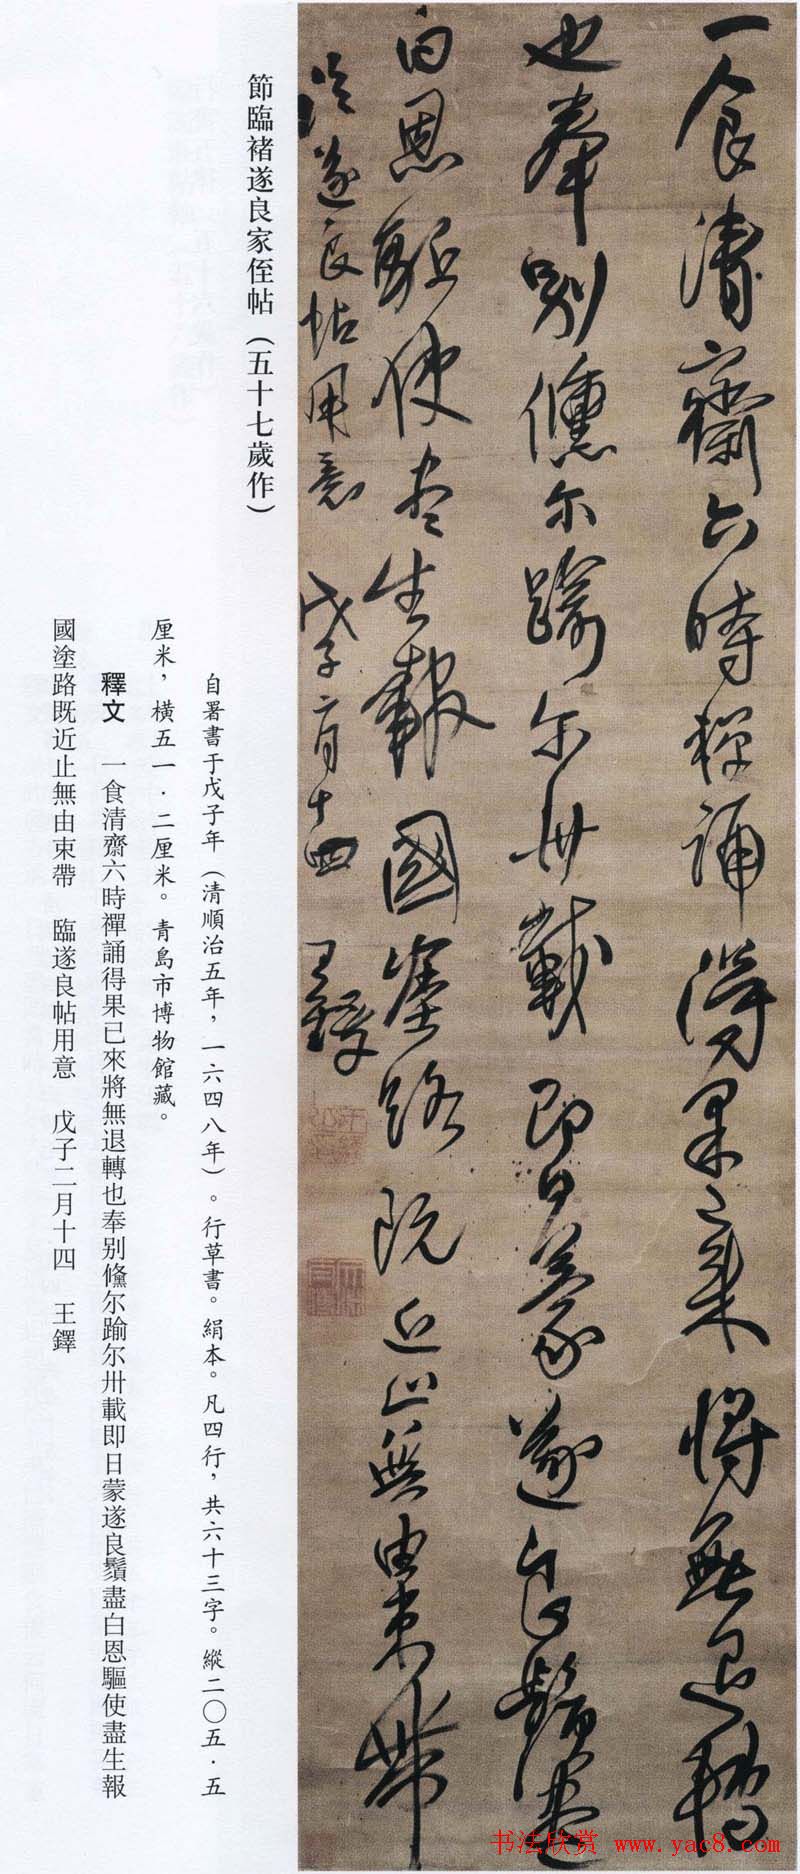 一食清齋六時禪誦得果已來將無退轉
也奉别儵尔踰尔卅載即日蒙遂良鬚盡
白恩驅使盡生報國塗路既近止無由束帶
臨遂良帖用意 戊子二月十四 王鐸
節臨褚遂良家侄帖（五十七歲作）
自署書于戊子年（清順治五年，一六四八年）。行草書。絹本。凡四行，共六十三字。縱二〇五·五
厘米，橫五一·二厘米。青島市博物館藏。
釋文 一食清齋六時禪誦得果已來將無退轉也奉别儵尔踰尔卅載即日蒙遂良鬚盡白恩驅使盡生報
國塗路既近止無由束帶 臨遂良帖用意 戊子二月十四 王鐸
书法欣赏 www.yac8.com